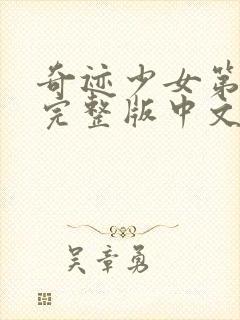 奇迹少女第
完整版中文
吴章勇